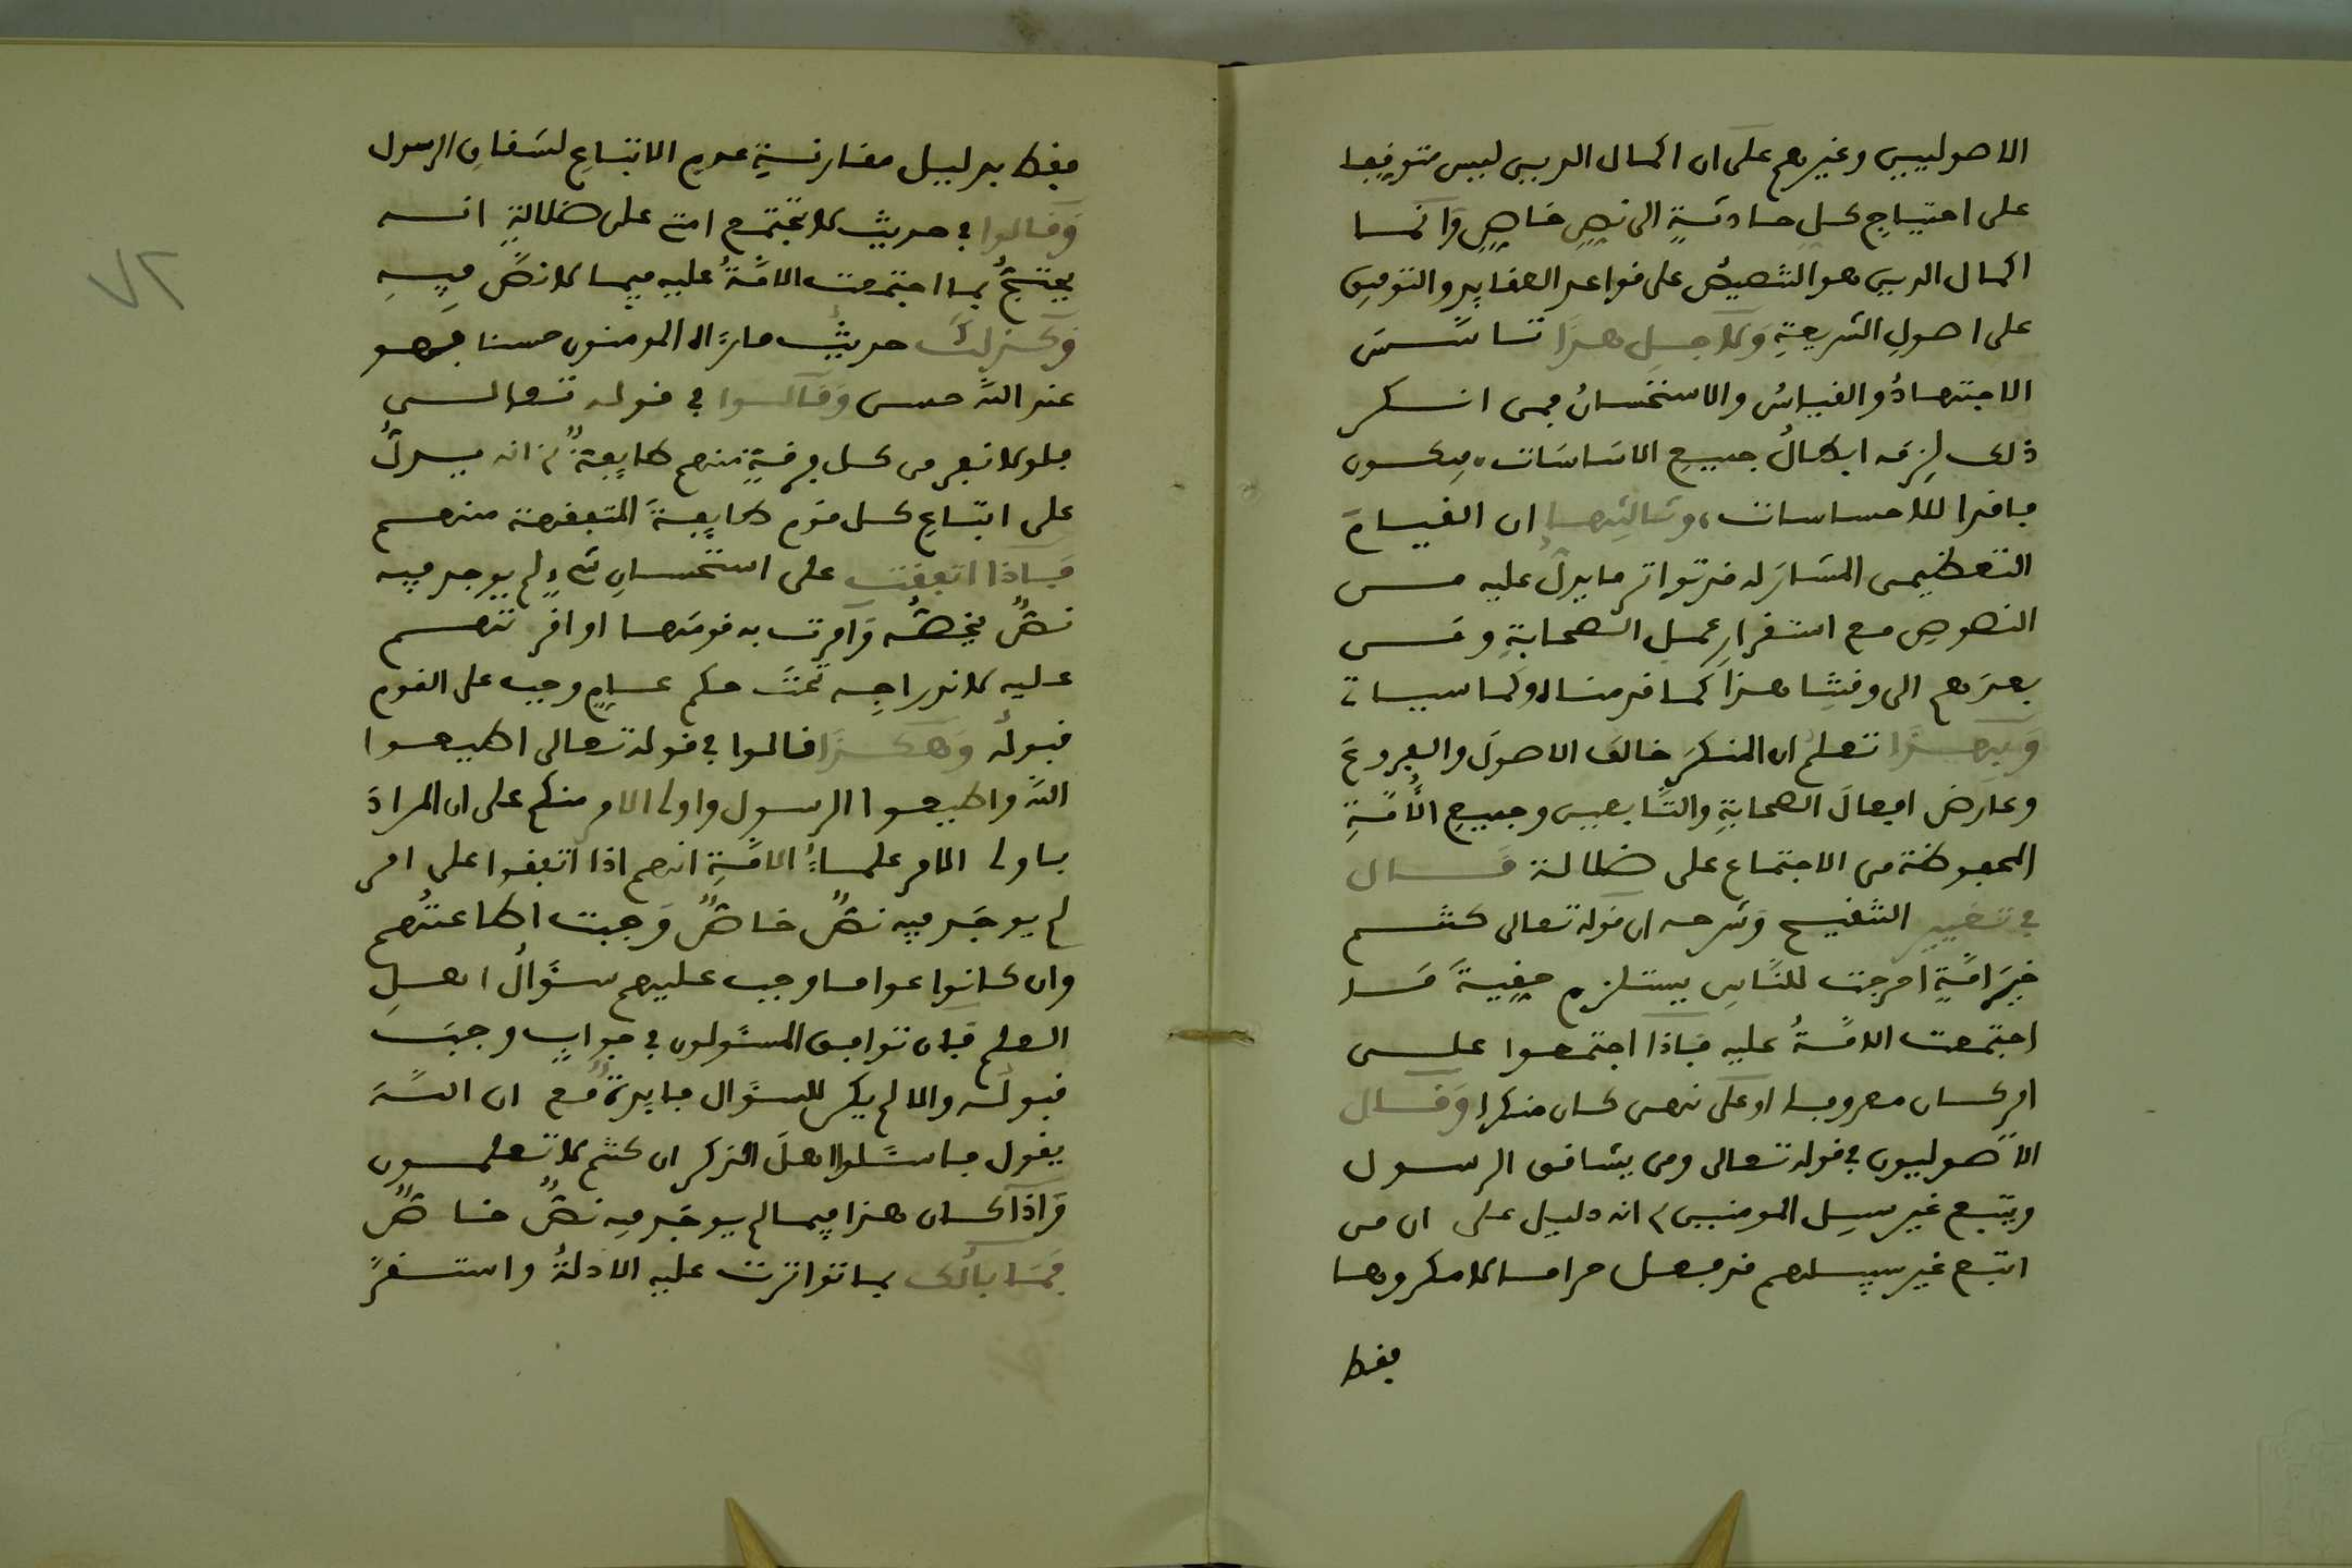 الاصوليين وغيرهم على ان اكمال الدين ليس متوقفا
على احتياجِ كل حادثةٍ الى نصٍ خاصٍ وَانما
اكمال الدين هو التنصيصُ على قواعد العقايدِ والتوقيفِ
على اصولِ الشريعةِ وَلاجل هذَا تاسَّسَ
الاجتهادُ والقياسُ والاستحسانُ فمن انكر
ذلك لزِمَه ابطالُ جميع الاسَاسَات، فيكون
فاقدا للاحساسات، وثالثها ان القيامَ
التعظيمى المشارَ له قد تواتر ما يدلُّ عليه من
النصوصِ مع استقرارِ عملِ الصحابةِ ومَن
بعدَهم الى وقتِنا هذَا كما قدمناه وكما سياتى
وَبهذَا تعلمُ ان المنكرَ خالف الاصولَ والفروعَ
وعارض افعالَ الصحابةِ والتَّابعين وجميعِ الأُمَّةِ
المحفوظة من الاجتماع على ضلالة قال
فى تغيير التنقيح وشرحه ان قوله تعالى كنتم
خيرَ امَّةٍ اخرجت للنَّاسِ يستلزم حقيةَ مَا
اجتمعت الامَّةُ عليه فَاذا اجتمعوا على
امر كان معروفا او على نهى كان منكرا وَقال
الاصوليون في قوله تعالى ومن يشاقق الرسول
ويتبع غير سبيل المومنين، انه دليل على ان من
اتبع غير سبيلهم قد فعل حراما لا مكروها
فقط
فقط بدليل مقارنةِ عدمِ الاتباعِ لشقاقِ الرسول
وَقالوا في حديث لا تجتمع امتى على ضلالةٍ انه
يحتجُّ بما اجتمعت الامَّةُ عليه فيما لا نصَّ فِيهِ
وَكذلكَ حديثُ ما رءاه المومنون حسنا فهو
عند اللَّه حسن وَقالوا في قوله تعالى
فلولا نفر من كل فرقةٍ منهم طايفةٌ، انه يدلُّ
على اتباعِ كل قوم طايفةَ المتفقهة منهم
فاذا اتفقت على استحسانِ شىءٍ لم يوجد فيه
نصٌّ يخصُّه وَامرت به قومَها او اقرتهم
عليه لاندراجِه تحتَ حكم عامٍ وجب على القوم
قبولُه وَهكذَا قالوا في قوله تعالى اطيعوا
اللَّه واطيعوا الرسول واولى الامر منكم على ان المرادَ
باولى الامر علماءُ الامَّةِ انهم اذا اتفقوا على امر
لم يوجَد فيه نصٌّ خاصٌّ وَجبت اطاعتُهم
وان كانوا عواما وجب عليهم سؤَالُ اهلِ
العلم فان توافق المسئولون في جوابٍ وجبَ
قبولُه والا لم يكن للسؤَال فايدةٌ مع ان اللَّهَ
يقول فاسئَلوا اهلَ الذكر ان كنتم لا تعلمون
وَاذا كان هذا فيما لم يوجَد فيه نصٌّ خاصٌّ
فمَا بالُك بما تواترت عليه الادلةُ واستقرَّ
٧٢